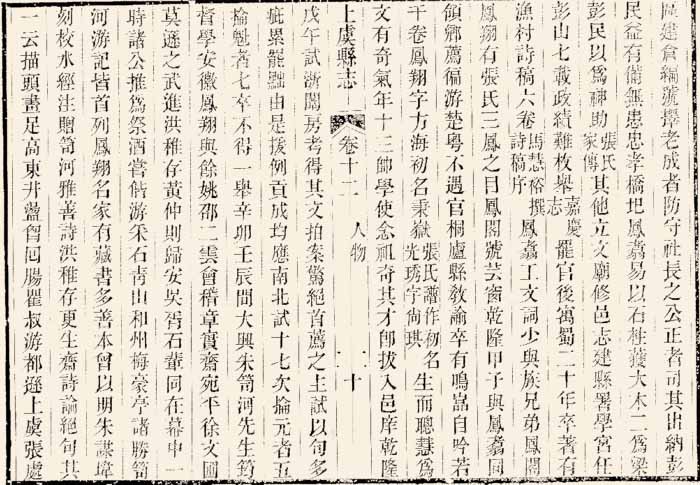 處建倉編號擇老成者防守社長之公正者司其出納彭
民益有備無患忠孝橋圯鳳翥易以石柱護大木二為梁
彭民以為神助張氏家傳其他立文廟修邑志建縣署學宮任
彭山七載政績難枚舉嘉慶志罷官後寓蜀二十年卒著有
漁村詩稿六卷馬慧裕撰詩稿序鳳翥工文詞少與族兄弟鳳閣
鳳翔有張氏三鳳之目鳳閣號芸窗乾隆甲子與鳳翥同
領鄉薦徧游楚粵不遇官桐廬縣敎諭卒有鳴嵓自吟若
干卷鳳翔字方海初名秉嶽張氏譜作初名光琇字尙琪生而聰慧為
文有奇氣年十三師學使念祖奇其才卽拔入邑庠乾隆
上虞縣志 卷十二 人物 十
戊午試浙闈房考得其文拍案驚絕首薦之主試以句多
疵累罷黜由是援例貢成均應南北試十七次掄元者五
掄魁者七卒不得一舉辛卯壬辰間大興朱笥河先生筠
督學安徽鳳翔與餘姚邵二雲會稽章實齋宛平徐文圃
莫遜之武進洪稚存黃仲則歸安吳胥石輩同在幕中一
時諸公推為祭酒嘗偕游采石靑山和州梅豪亭諸勝笥
河游記皆首列鳳翔名家有藏書多善本曾以明朱謀㙔
刻校水經注贈笥河雅善詩洪稚存更生齋詩論絕句其
一云描頭畫足高東井盪魯回腸瞿叔游都遜上虞張處